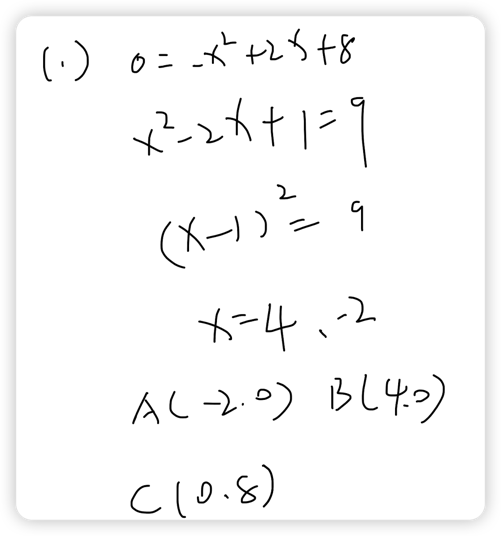 (.) 0 = -x² + 2x + 8
x² - 2x + 1 = 9
(x-1)² = 9
x = 4 、 -2
A(-2.0) B(4.0)
C(0.8)